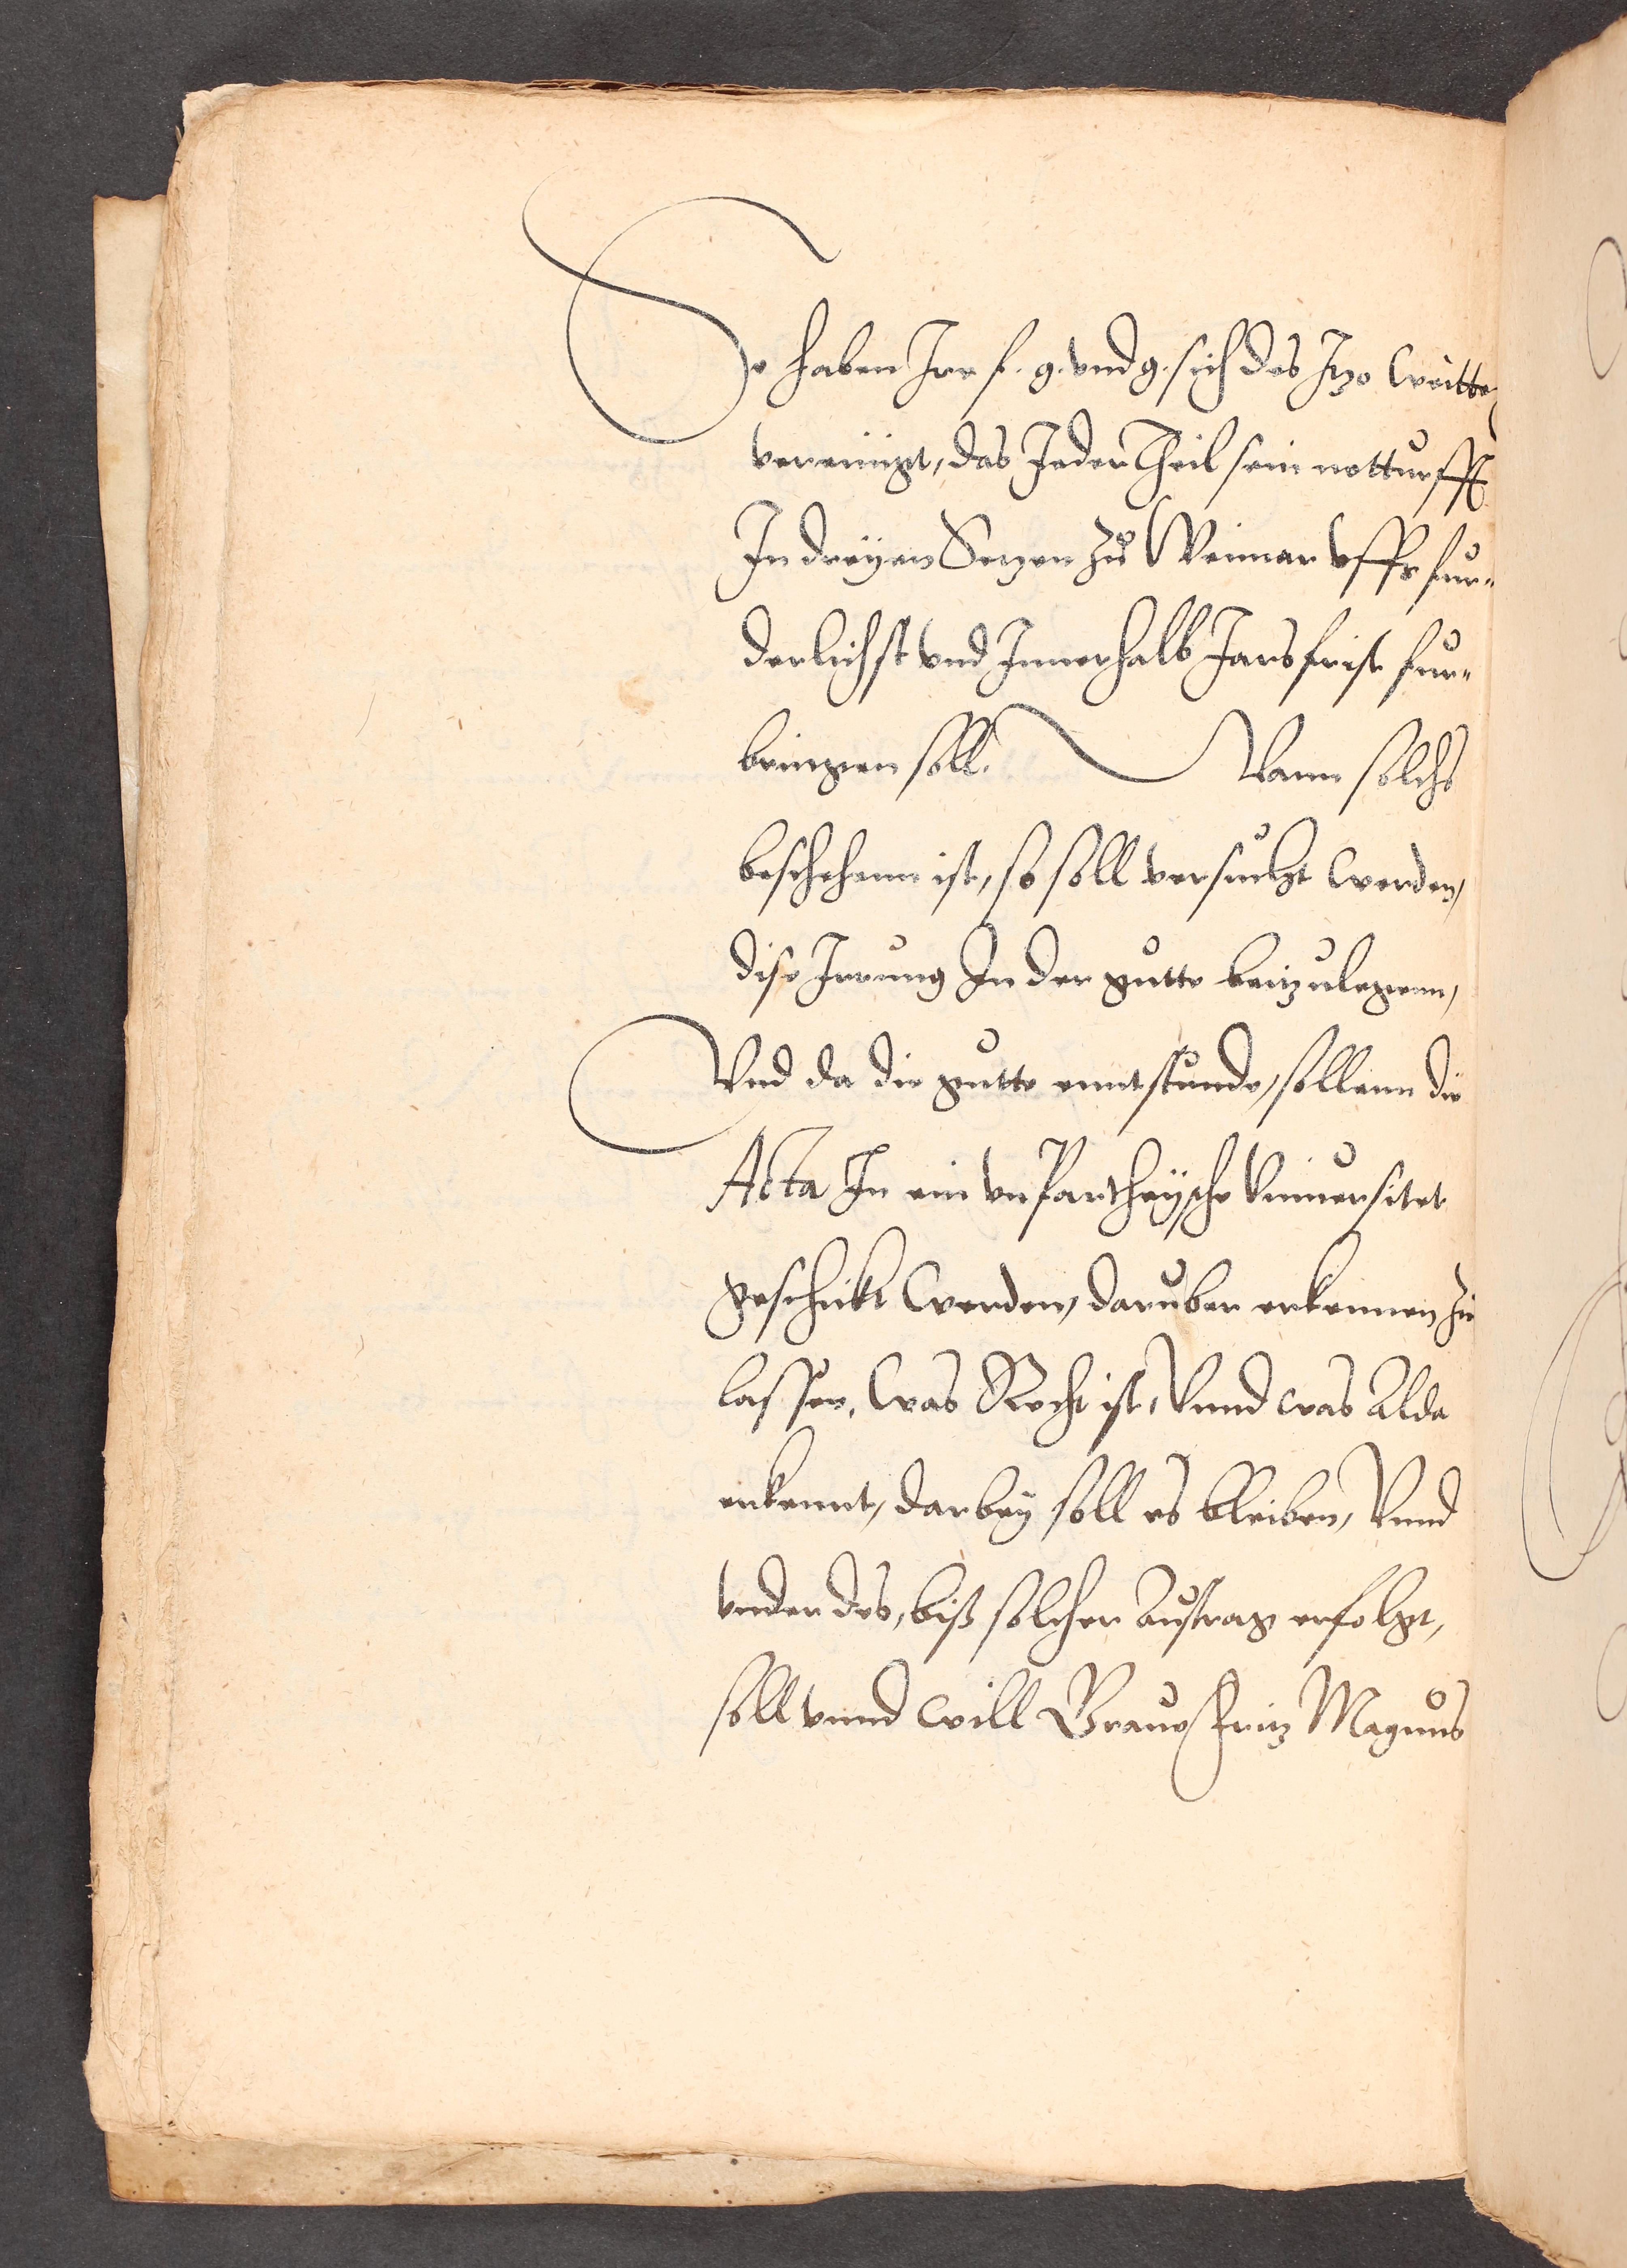 So haben Ire f. g. vnd g. sich des Izo weitter
vereinigt, das Jeder Theil sein notturfft
In dreyen Sezen zu Weimar vffs fur-
derlichst vnd Innerhalb Jars frist fur-
bringen soll. Wann solchs
beschehenn ist, so soll versucht werden,
dise Irrung In der gutte beizulegenn,
Vnd da die gutte enntstunde, sollenn die
Acta In ein vnPartheysche Vniuersitet
geschickt werden, daruber erkennen zu
lassen, was Recht ist, Vnnd was Alda
erkennt, darbey soll es bleiben, Vnnd
vnder des, biß solcher Austrag erfolgt,
soll vnnd will Graue Friz Magnus